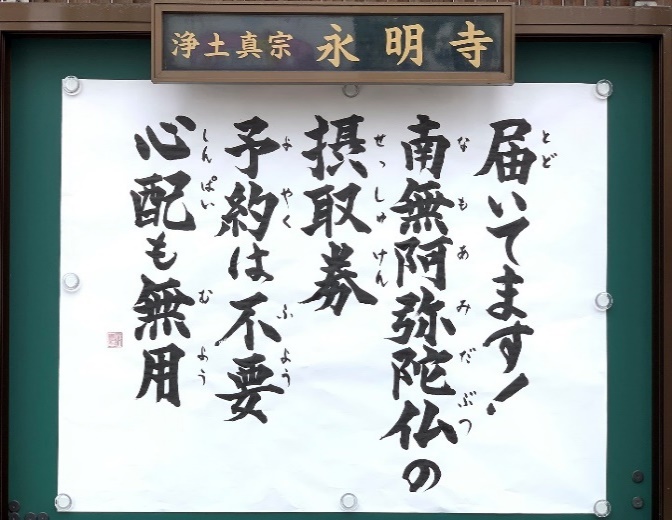 浄土真宗 永明寺
届いてます!
南無阿弥陀仏の
摂取券
予約は不要
心配も無用
とど
なもあみだぶつ
せっしゅけん
よやく ふよう
しんぱい むよう